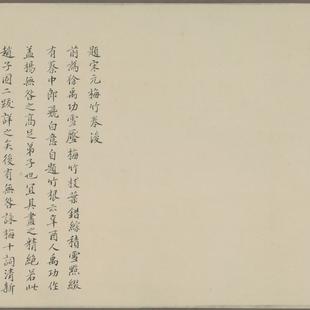 題宋元梅竹卷後
前為徐禹功雪壓梅竹枝葉錯綜積雪點綴
有蔡中郎飛白意自題竹根云辛酉人禹功作
蓋揚無咎之高足弟子也宜其畫之精絕若此
趙子固二跋詳之矣後有無咎詠梅十詞清新